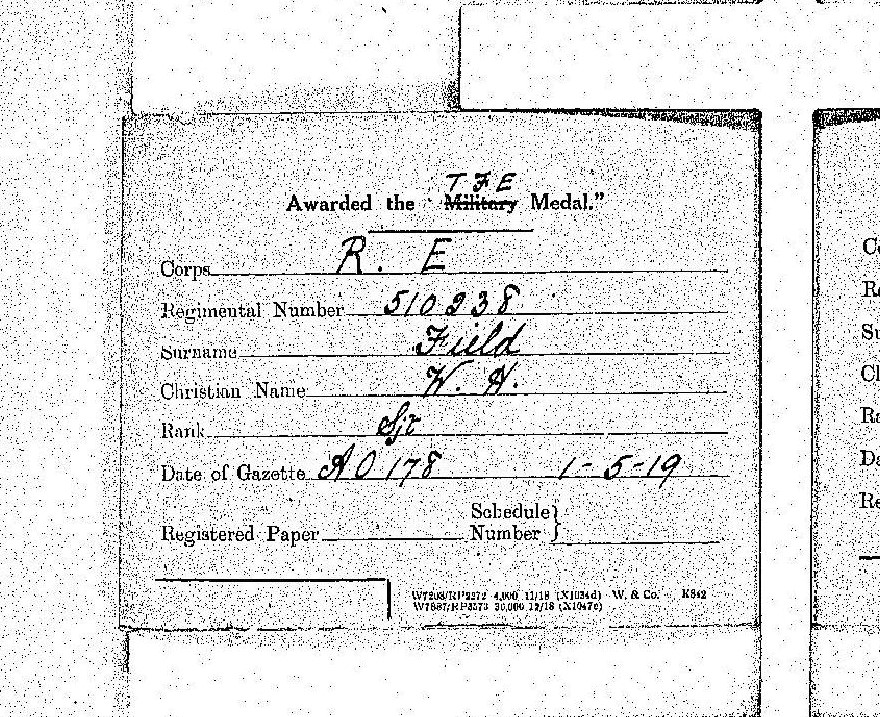 T F E
Awarded the "Military Medal."
Corps R. E
Regimental Number 510238
Surname Field
Christian Name W. H.
Rank Sjt
Date of Gazette AO 178 1-5-19
Schedule }
Registered Paper Number }
W7203/RP2272 4,000 11/18 (X1034d) W. & Co. K842
W7887/RP3573 30,000 12/18 (X1047c)
Co
Re
Su
Ch
Ra
Da
Re